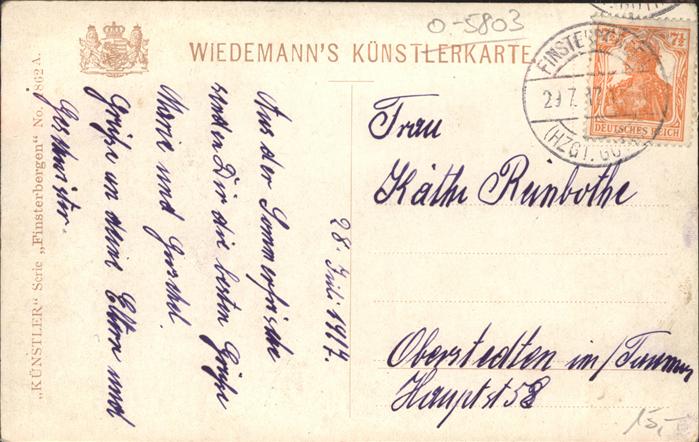 0-5803
WIEDEMANN'S KÜNSTLERKARTE
„KÜNSTLER“ Serie „Finsterbergen“ No. 862 A.
FINSTERBERGEN
29.7.17
(HZGT. GOTHA)
7½
DEUTSCHES REICH
28. Juli 1917.
Aus der Sommerfrische
senden Dir die besten Grüße
Marie und Gretchel.
Grüße an deine Eltern und
Geschwister.
Frau
Käthe Reinbothe
Oberstedten im/Taunus
Hauptst 58